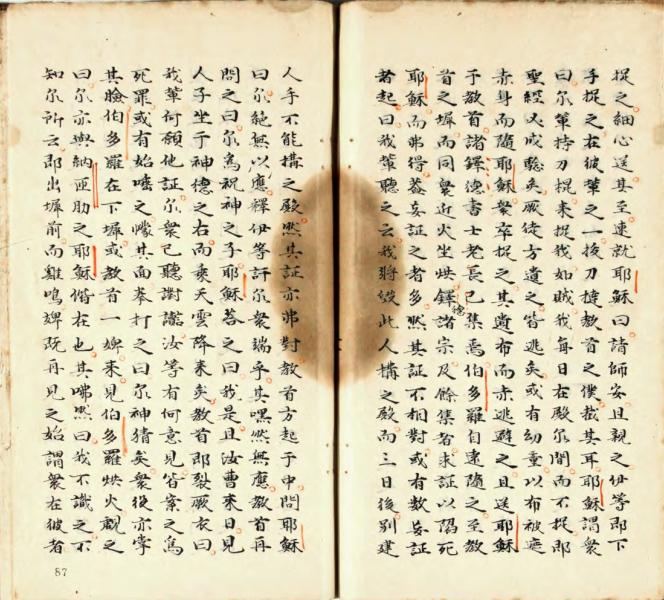 捉之細心送其至速就耶穌曰請師安且親之伊等即下
手捉之在彼輩之一拔刀撻教首之僕截其耳耶穌謂衆
曰尔輩持刀棍来捉我如賊我每日在殿尔間而不捉即
聖經以成驗矣厥徒方遺之皆逃矣或有幼童以布被遮
赤身而隨耶穌衆卒捉之其遺布而赤逃避之且送耶穌
于教首諸鐸德書士老長已集焉伯多羅自遠隨之至教
首之墀而同衆近火坐烘鐸德諸宗及餘集者求証以陷死
耶穌而弗得葢妄証之者多然其証不相對或有数妄証
者起曰我輩聽之云我將毀此人搆之殿而三日後别建
人手不能搆之殿然其証亦弗對教首方起于中問耶穌
曰尔絶無以應釋伊等訐尔衆端乎其嘿然無應教首再
問之曰尔為祝神之子耶穌荅之曰我是且汝曹来日見
人子坐于神德之右而乘天雲降来矣教首即裂厥衣曰
我輩何願他証尔衆已聽對讟汝等有何意見皆案之爲
死罪或有始唾之幪其面拳打之曰尔神猜矣衆役亦掌
其臉伯多羅在下墀或教首一婢来見伯多羅烘火覷之
曰尔亦與納匝肋之耶穌偕在也其咈然曰我不識之不
知尔所云即出墀前而雞鳴婢既再見之始謂衆在彼者
87